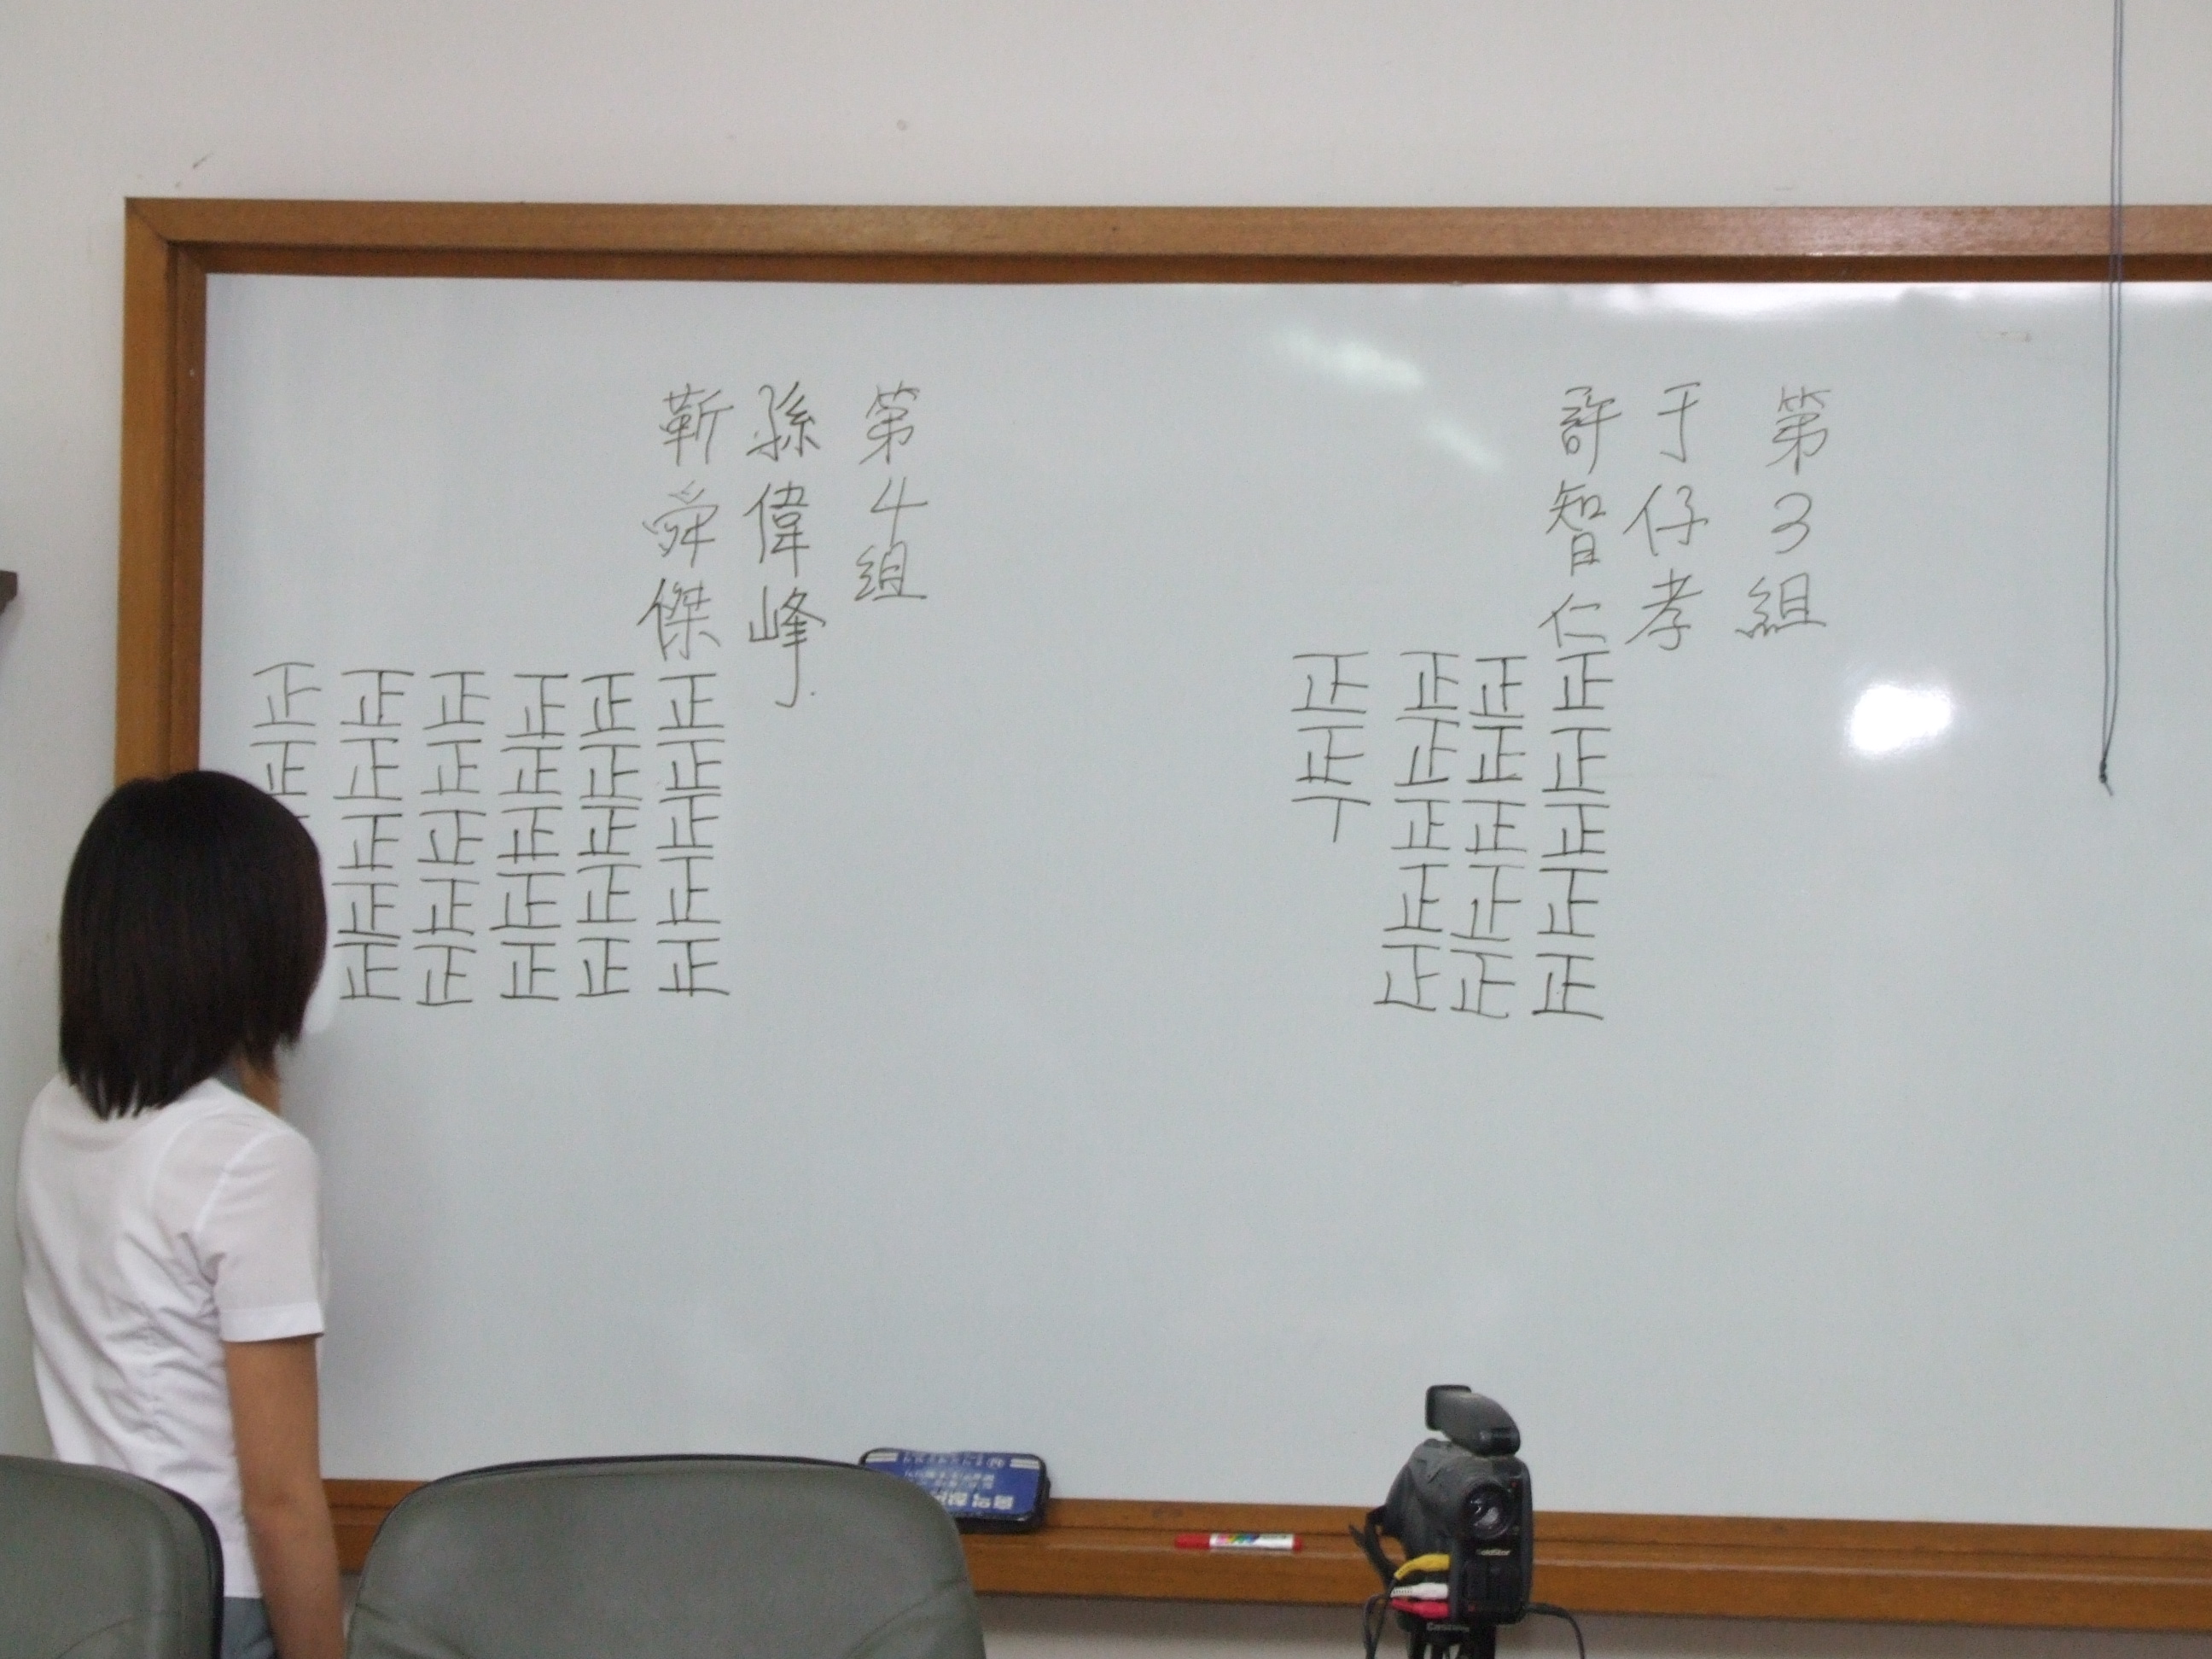 第3組
于仔孝
許智仁正正正正正
正正正正正
正正正正正
正正丅
第4組
孫偉峰
靳舜傑正正正正正
正正正正正
正正正正正
正正正正正
正正正正正
正正